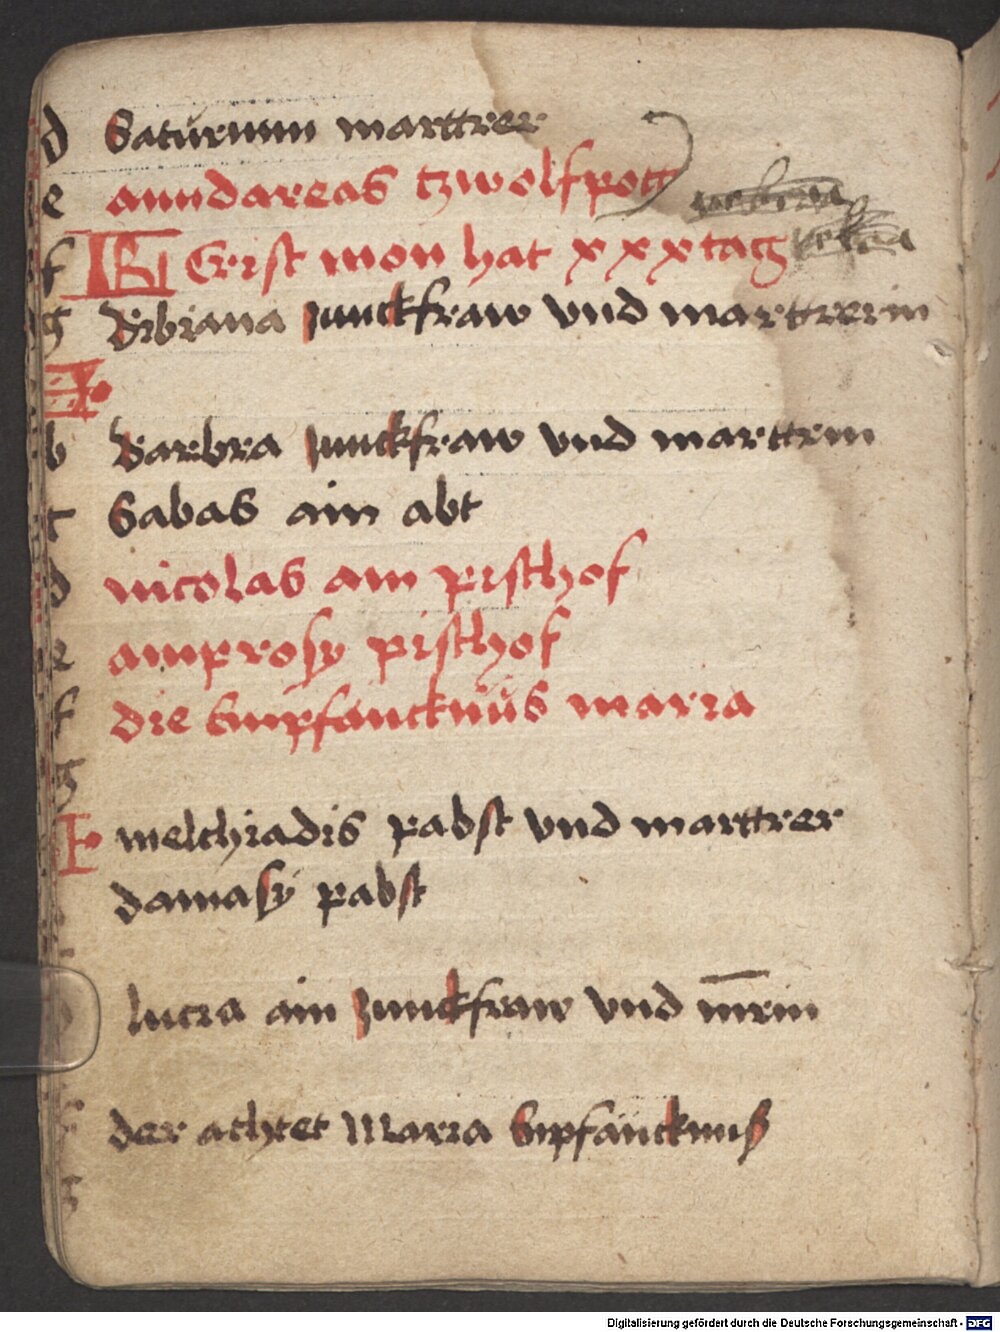 d Saturninn marttrer
e anndareas tzwolfpott
f KL Erist mon hat xxx tag
g Bibiana Junckfraw vnd marttrerin
A
b Barbra Junckfraw vnd marttrin
c Sabas ain abt
d nicolas ain pisthof
e amprosy pisthof
f die Empfäncknüs maria
g
A melchiadis pabst vnd marttrer
damasy pabst
lucia ain Junckfraw vnd mrin
f der achtet Maria Enpfäncknuß
g
Digitalisierung gefördert durch die Deutsche Forschungsgemeinschaft - DFG